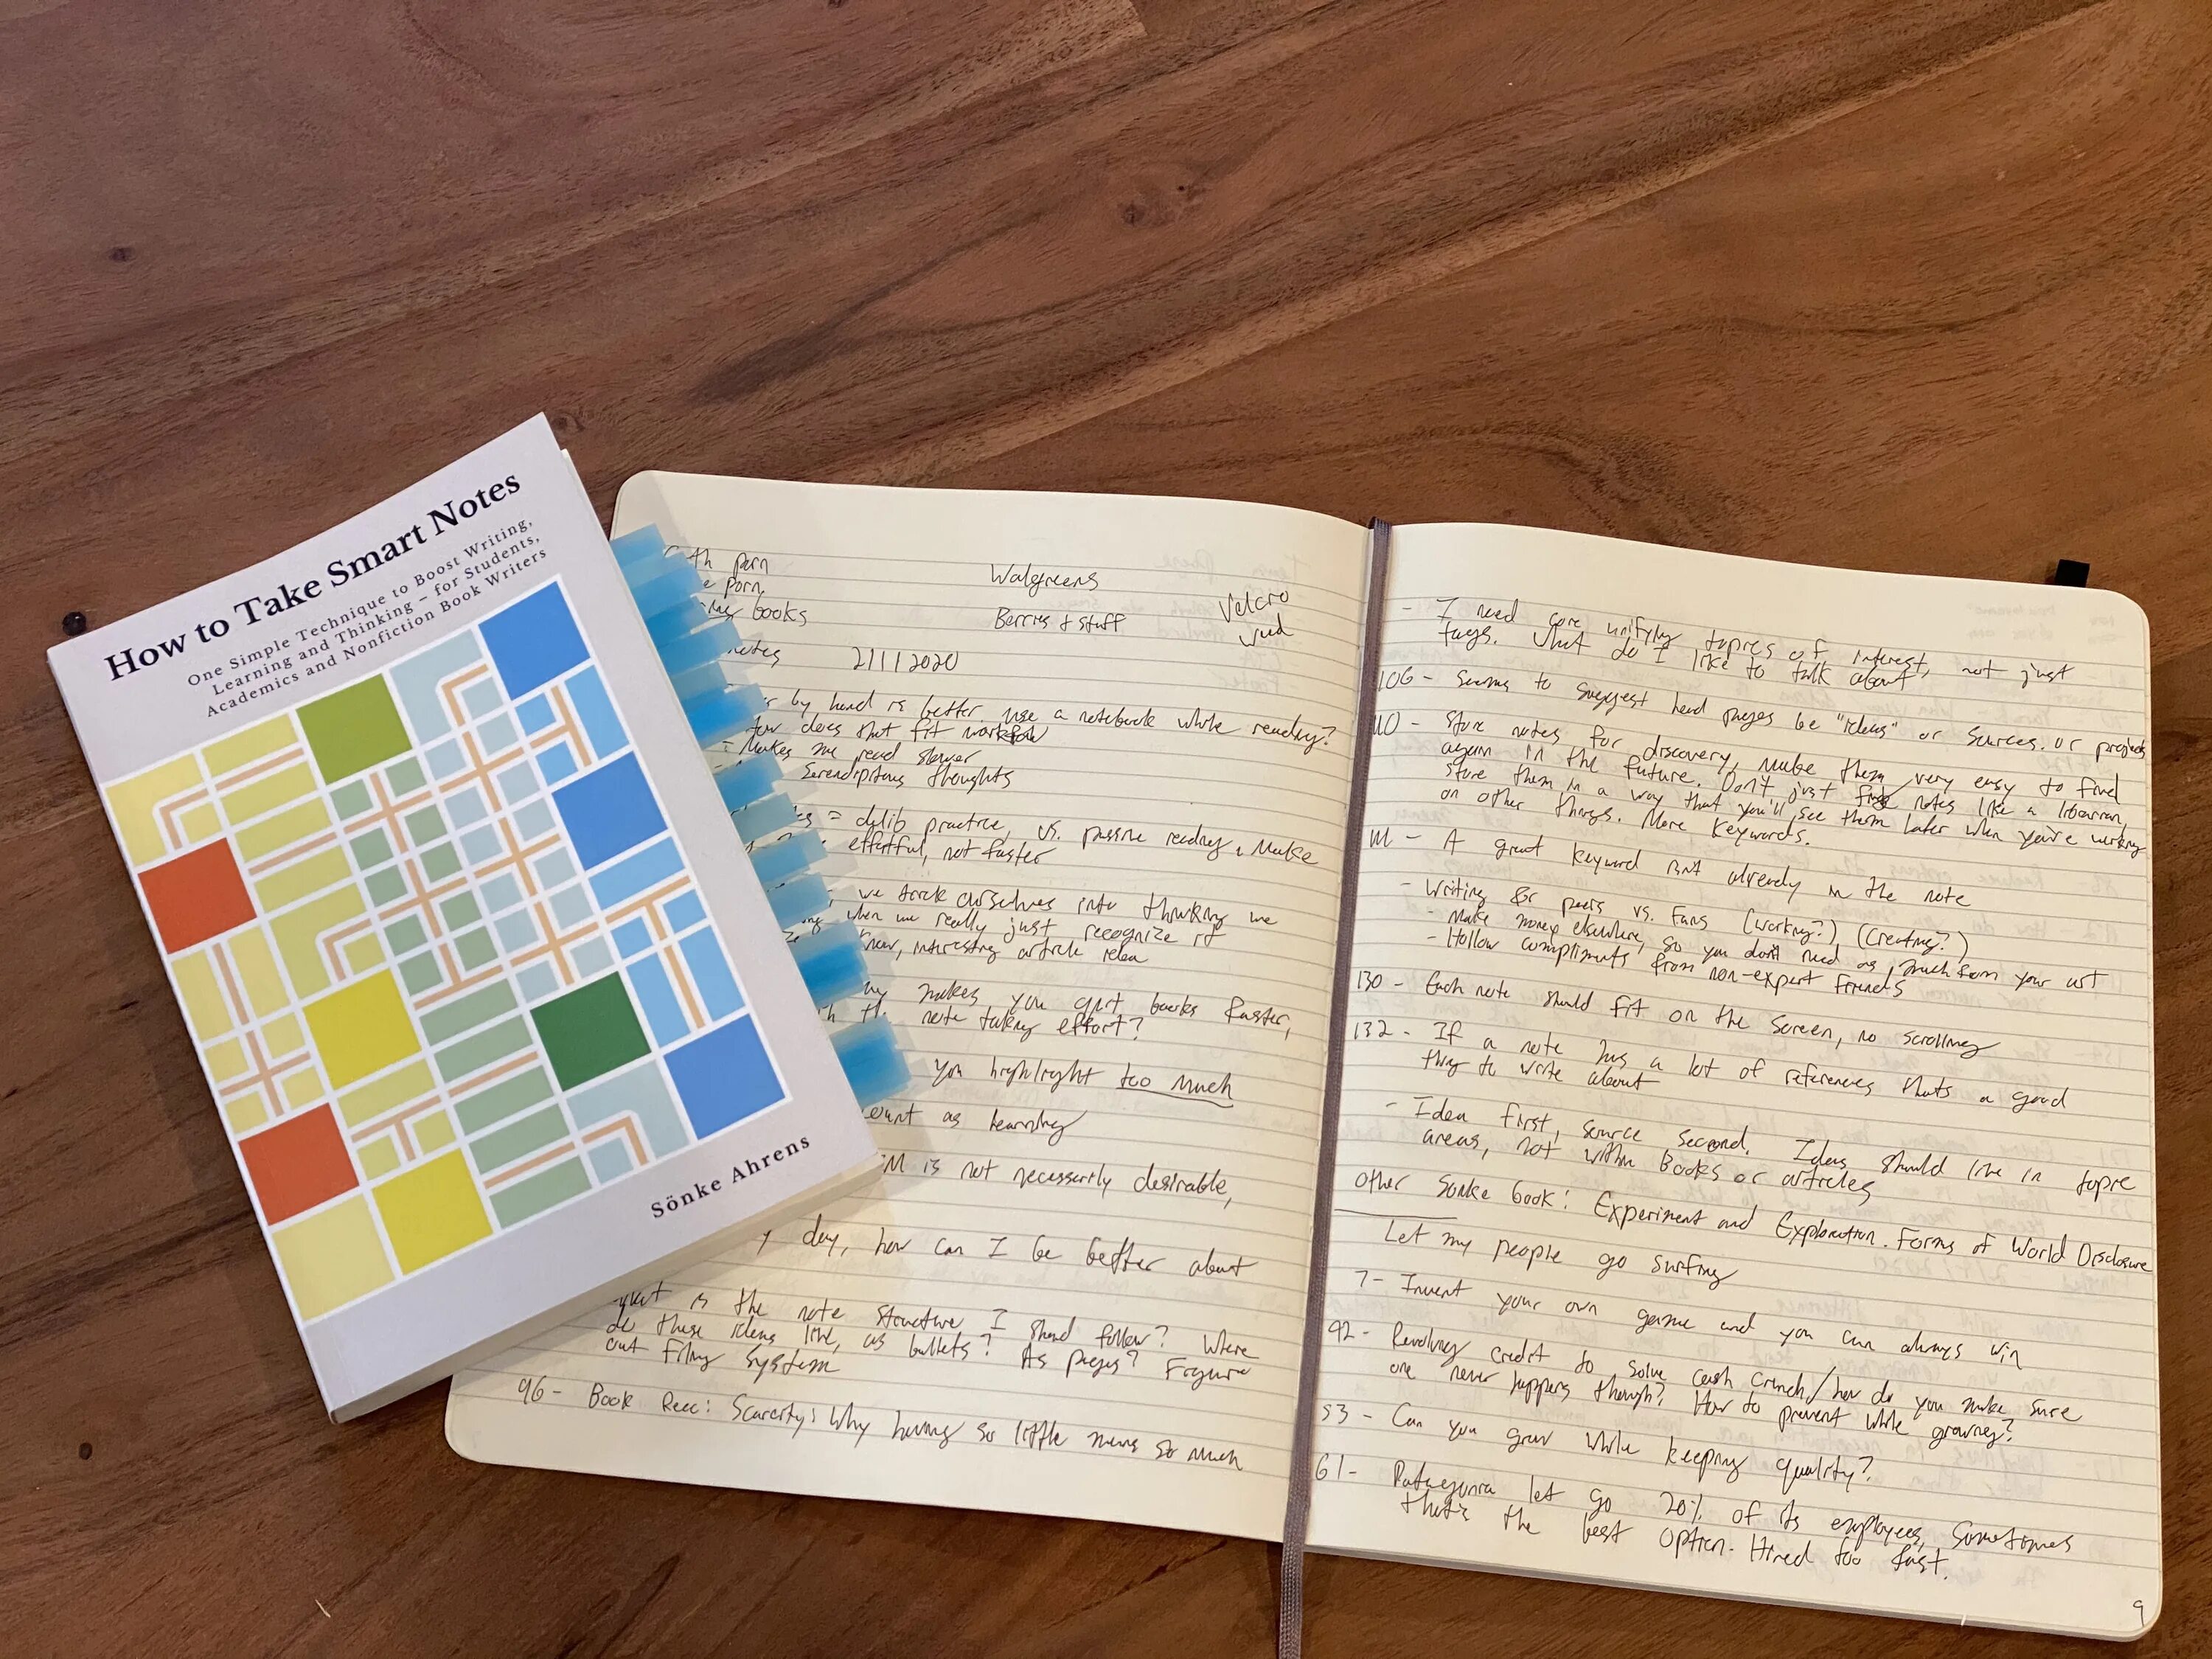 How to Take Smart Notes
One Simple Technique to Boost Writing,
Learning and Thinking – for Students,
Academics and Nonfiction Book Writers
Sönke Ahrens
th porn
e porn
books
Walgreens
Berries & stuff
Velcro
notes 2/11/2020
by hand is better, use a notebook while reading?
does that fit workflow
- Makes me read slower
Serendipitous thoughts
= delib practice, vs. passive reading. Make
effortful, not faster
we trick ourselves into thinking we
when we really just recognize it
new, interesting article idea
makes you quit books faster,
note taking effort?
you highlight too much
count as learning
is not necessarily desirable,
day, how can I be better about
what is the note structure I should follow? Where
do these ideas live, as bullets? As pages? Figure
out filing system
96 - Book Rec: Scarcity: Why having so little means so much
- I need core unifying topics of interest, not just
tags. What do I like to talk about
106 - Seems to suggest head pages be "ideas" or sources. or projects
110 - Store notes for discovery, make them very easy to find
again in the future. Don't just notes like a librarian,
store them in a way that you'll see them later when you're working
on other things. More keywords.
111 - A great keyword isn't already in the note
- Writing for peers vs. Fans (working?) (Creating?)
- Make money elsewhere, so you don't need as much from your art
- Hollow compliments from non-expert friends
130 - Each note should fit on the screen, no scrolling
132 - If a note has a lot of references thats a good
thing to write about
- Idea first, source second. Ideas should live in topic
areas, not within Books or articles
other Sonke book: Experiment and Exploration. Forms of World Disclosure
Let my people go surfing
7 - Invent your own game and you can always win
92 - Revolving credit to solve cash crunch/how do you make sure
one never happens though? How to prevent while growing?
53 - Can you grow while keeping quality?
61 - Patagonia let go 20% of its employees, sometimes
that's the best option. Hired too fast.
9